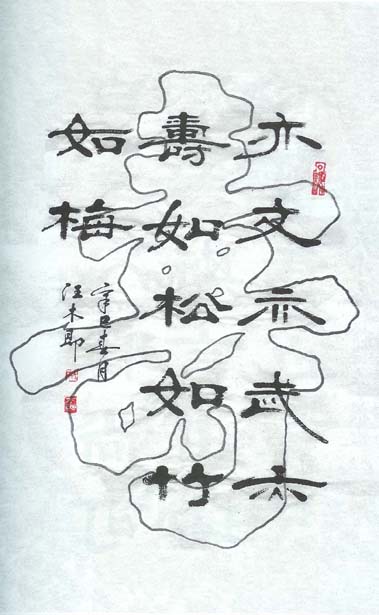 亦文亦武亦
壽如松如竹
如梅
辛巳春月
汪木即